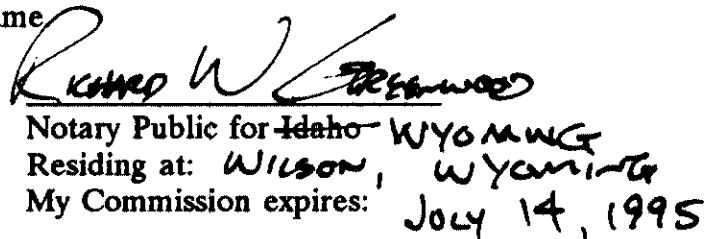 me
RICHARD W GREENWOOD
Notary Public for Idaho WYOMING
Residing at: WILSON, WYOMING
My Commission expires: JULY 14, 1995